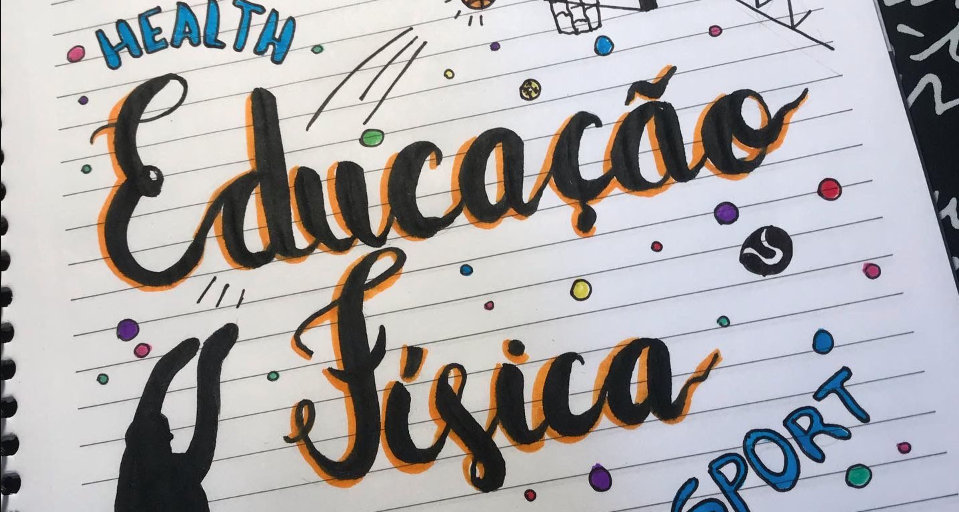 HEALTH
Educação
Física
SPORT